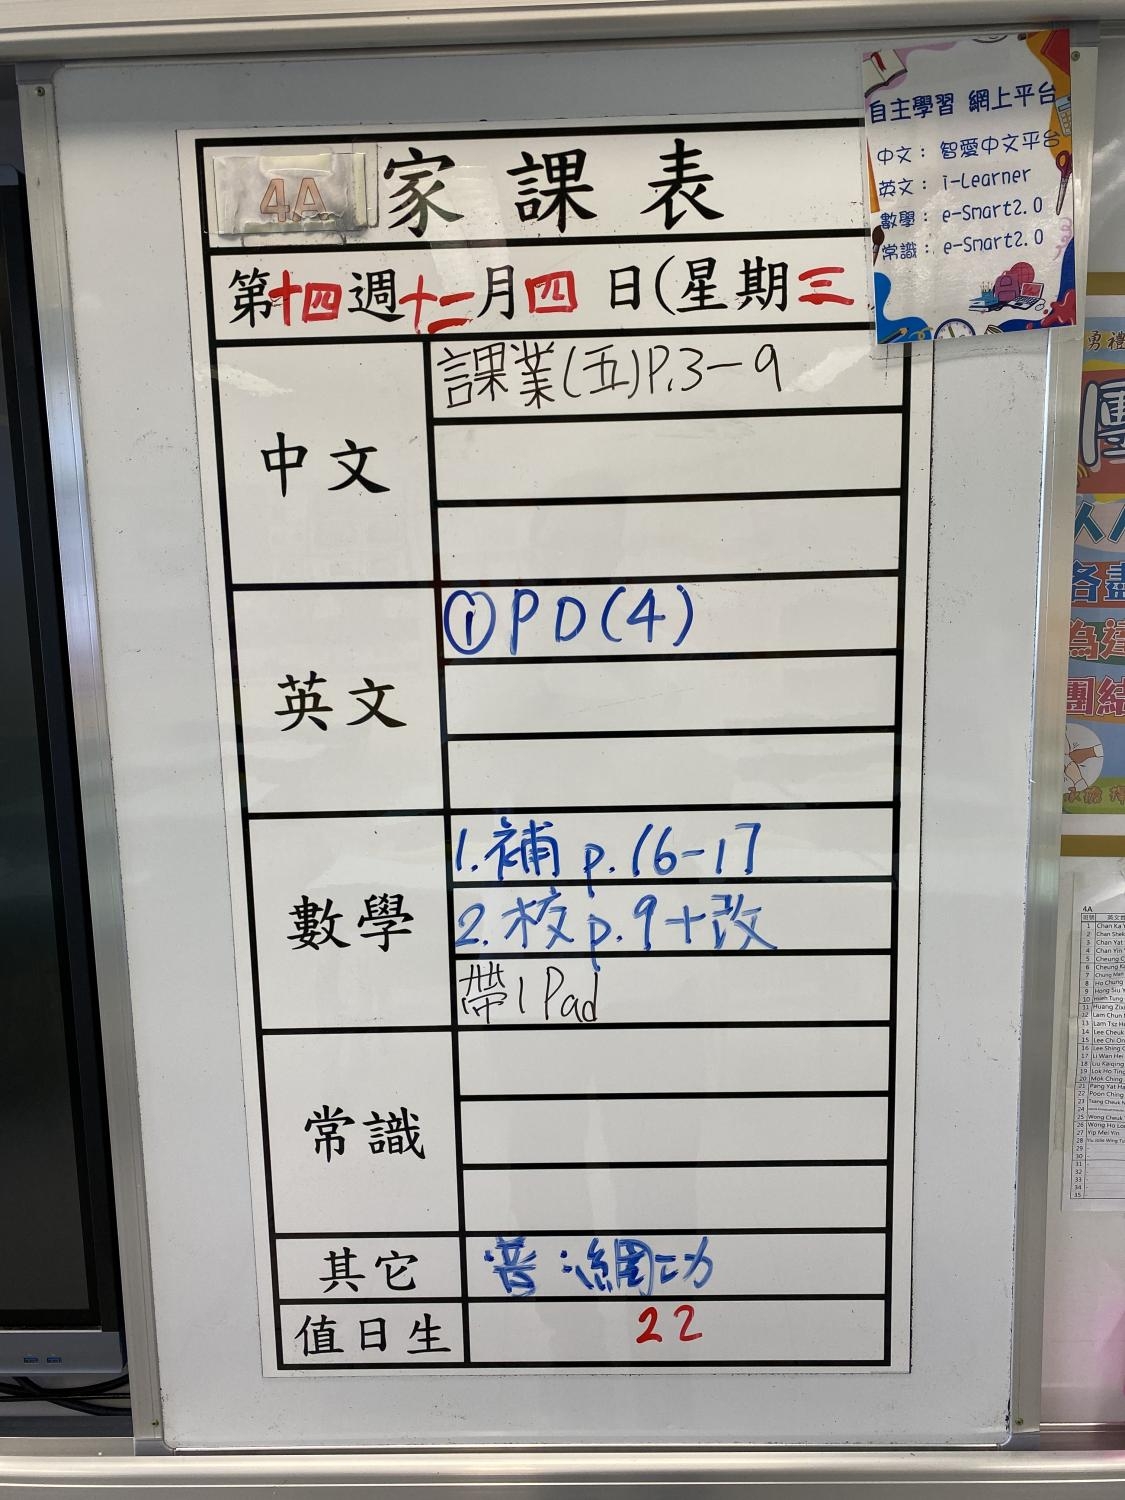 4A 家課表
第十四週十二月四日(星期三
中文
課業(五)P.3-9
英文
①PD(4)
數學
1.補 p.16-17
2.校 p.9+改
帶iPad
常識
其它
普:網功
值日生
22
自主學習 網上平台
中文:智愛中文平台
英文:i-Learner
數學:e-Smart2.0
常識:e-Smart2.0
勇禮
團
人人
各盡
為
團結
4A
班號 英文
1 Chan Ka
2 Chan Shek
3 Chan Yat
4 Chan Yin
5 Cheung C
6 Cheung K
7 Chung Man
8 Ho Chung
9 Hong Siu Y
10 Hsieh Tung
11 Huang Zixi
12 Lam Chun
13 Lam Tsz H
14 Lee Cheuk
15 Lee Chi On
16 Lee Shing
17 Li Wan Hei
18 Liu Kaiqing
19 Lok Ho Ting
20 Mok Ching
21 Pang Yat Ha
22 Poon Ching
23 Tsang Cheuk
24
25 Wong Cheuk
26 Wong Ho Lo
27 Yip Mei Yin
28
29
30
31
32
33
34
35